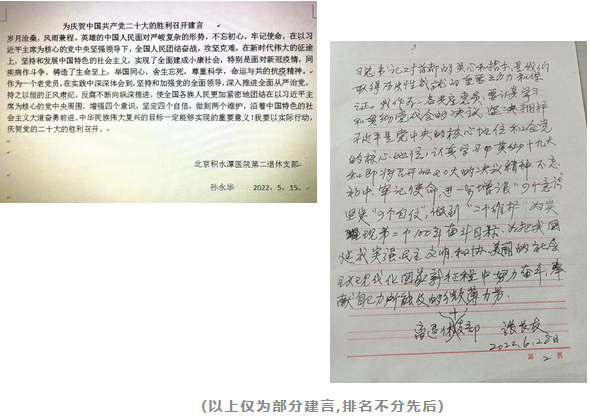 为庆贺中国共产党二十大的胜利召开建言
岁月沧桑，风雨兼程，英雄的中国人民面对严峻复杂的形势，不忘初心，牢记使命，在以习
近平主席为核心的党中央坚强领导下，全国人民团结奋战，攻坚克难，在新时代伟大的征途
上，坚持和发展中国特色的社会主义，实现了全面建成小康社会，特别是面对新冠疫情，同
疾病作斗争，铸造了生命至上，举国同心，舍生忘死，尊重科学，命运与共的抗疫精神。
作为一个老党员，在实践中深深体会到，坚持和加强党的全面领导，深入推进全面从严治党，
持之以恒的正风肃纪，反腐不断向纵深推进，使全国各族人民更加紧密地团结在以习近平主
席为核心的党中央周围，增强四个意识，坚定四个自信，做到两个维护，沿着中国特色的社
会主义大道奋勇前进，中华民族伟大复兴的目标一定能够实现的重要意义！我要以实际行动，
庆贺党的二十大的胜利召开。
北京积水潭医院第二退休支部
孙永华 2022.5.15.
习总书记对首都的关心和指示是我们
取得历史性成就的重要动力和保
证。我作为一名共产党员，要认真学习
和贯彻党代会的决议，坚决拥护
习近平是党中央的核心地位和全党
的核心地位，认真学习贯彻十九大
和即将召开的20大的决议精神，不忘
初心，牢记使命，进一步增强"四个意识"
坚定"四个自信"，做到"二个维护"为实
现第二个100年奋斗目标，为把我国
建成富强、民主、文明、和协、美丽的社会
主义现代化国家新征程中努力奋斗，奉
献自己力所能及的微薄力量。
离退休支部 张长友
2022.6.23日
第 2 页
(以上仅为部分建言,排名不分先后)